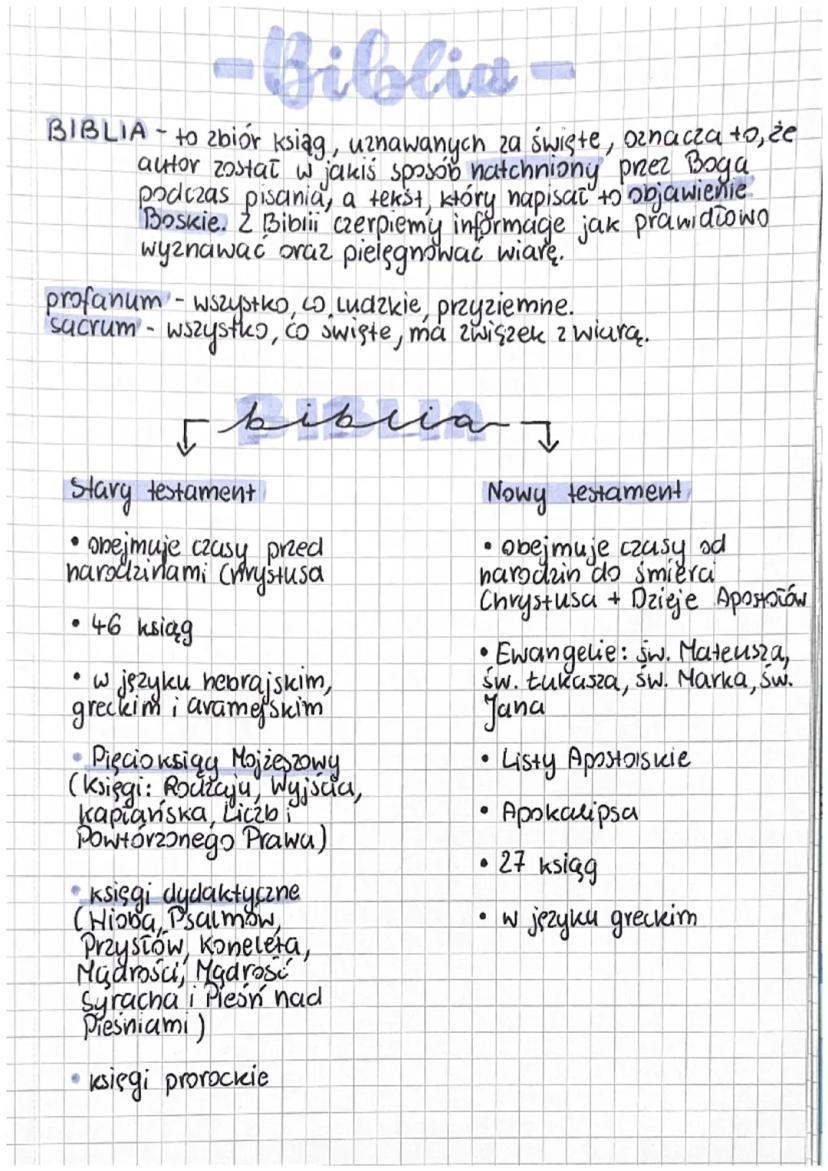 -Biblia-
BIBLIA - to zbiór ksiąg, uznawanych za święte, oznacza to, że
autor został w jakiś sposób natchniony przez Boga
podczas pisania, a tekst, który napisał to objawienie
Boskie. Z Biblii czerpiemy informacje jak prawidłowo
wyznawać oraz pielęgnować wiarę.
profanum - wszystko, co ludzkie, przyziemne.
sacrum - wszystko, co święte, ma związek z wiarą.
BIBLIA
biblia
Stary testament
• obejmuje czasy przed
narodzinami Chrystusa
• 46 ksiąg
• w języku hebrajskim,
greckim i aramejskim
• Pięcioksiąg Mojżeszowy
(Księgi: Rodzaju, Wyjścia,
Kapłańska, Liczb i
Powtórzonego Prawa)
• księgi dydaktyczne
(Hioba, Psalmów,
Przysłów, Koheleta,
Mądrości, Mądrość
Syracha i Pieśń nad
Pieśniami)
• księgi prorockie
Nowy testament
• obejmuje czasy od
narodzin do śmierci
Chrystusa + Dzieje Apostołów
• Ewangelie: św. Mateusza,
św. Łukasza, św. Marka, św.
Jana
• Listy Apostolskie
• Apokalipsa
• 27 ksiąg
• w języku greckim